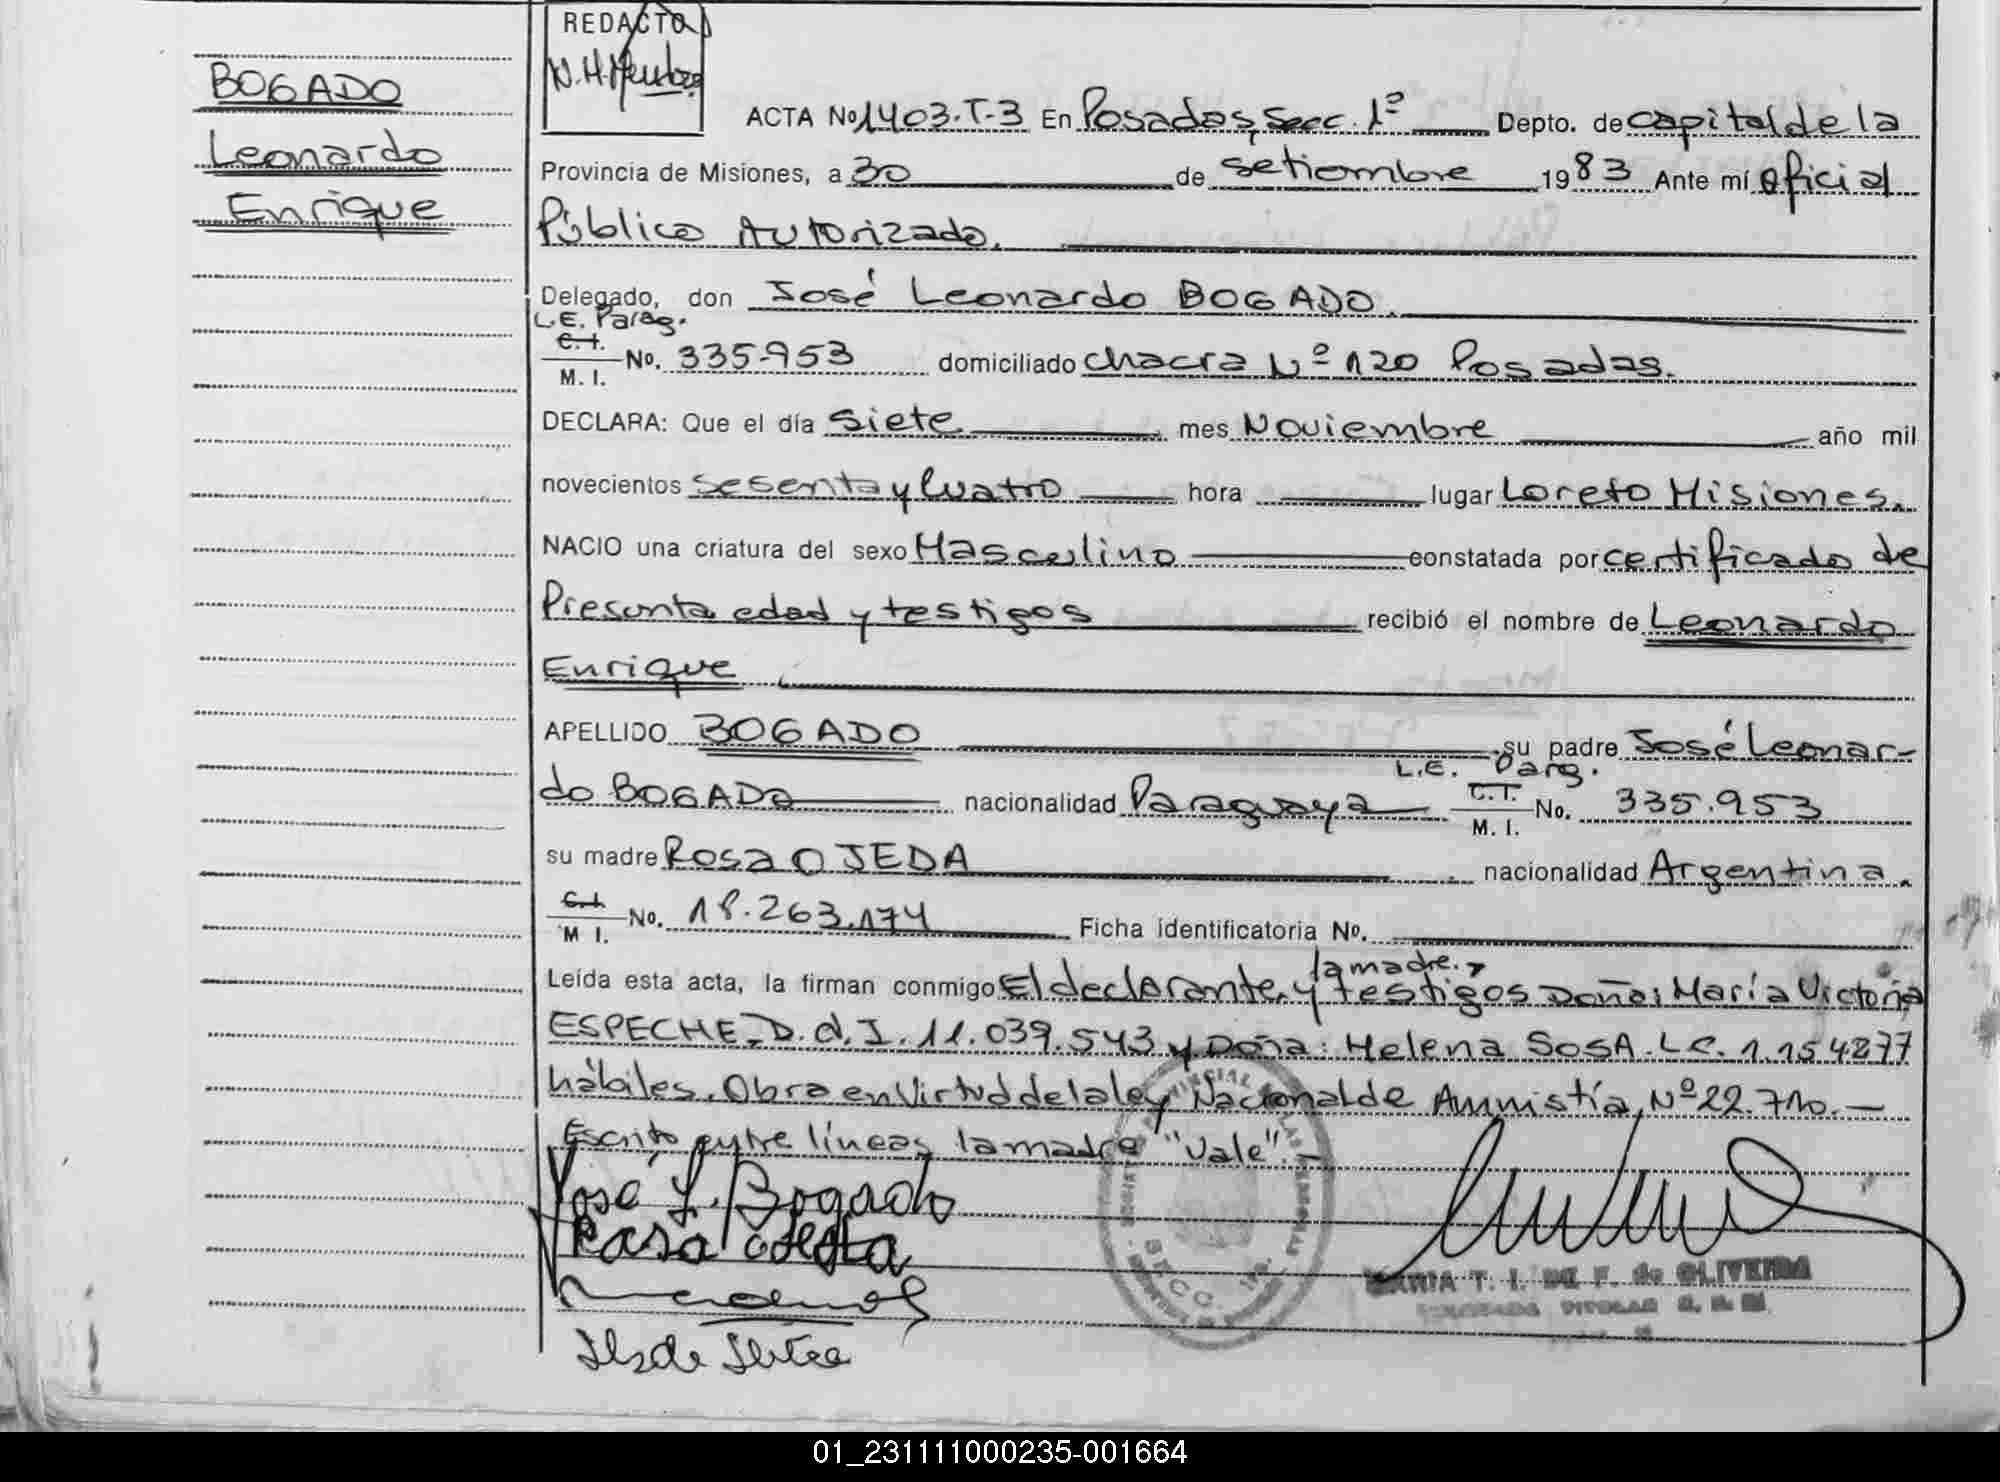 BOGADO
Leonardo
Enrique
REDACTO
ACTA Nº 1403.T-3 En Posadas, Secc. 1º Depto. de capital de la
Provincia de Misiones, a 30 de setiembre 1983 Ante mí oficial
Público Autorizado.
Delegado, don José Leonardo BOGADO.
L.E. Parag.
C.I.
M. I. No. 335.953 domiciliado chacra Nº 120 Posadas.
DECLARA: Que el día siete mes Noviembre año mil
novecientos sesenta y Cuatro hora lugar Loreto Misiones.
NACIO una criatura del sexo Masculino constatada por certificado de
Presunta edad y testigos recibió el nombre de Leonardo
Enrique
APELLIDO BOGADO su padre José Leonar-
L.E. Parg.
do BOGADO nacionalidad Paraguaya C.I. M. I. No. 335.953
su madre Rosa OJEDA nacionalidad Argentina.
C.I.
M I. No. 18.263.174 Ficha identificatoria No.
la madre. y
Leída esta acta, la firman conmigo El declarante, y testigos Doña: María Victoria
ESPECHE, D.d.I. 11.039.543 y Doña: Helena SOSA. L.C. 1.154277
hábiles. Obra en Virtud de la ley Nacional de Amnistía, Nº 22.710.—
Escrito entre líneas, la madre "Vale".
José L. Bogado
Rosa Ojeda
SECC. 1ra.
MARIA T. I. DE F. de OLIVEIRA
01_231111000235-001664